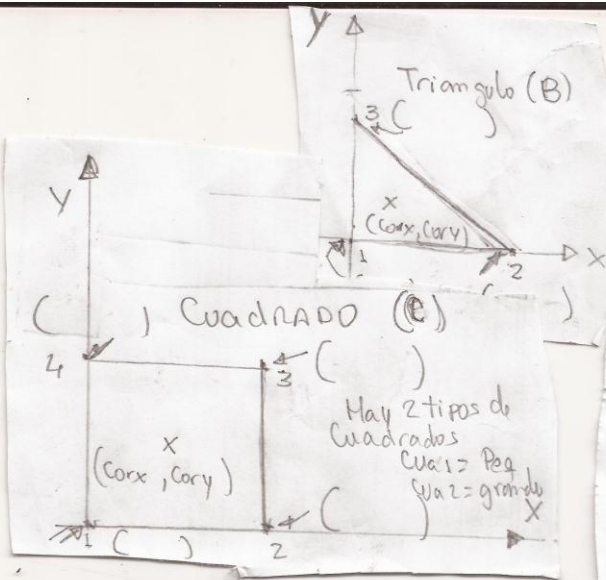 Y
Triangulo (B)
3 ( )
X
(Corx, Cory)
1
2
X
( )
Y
( ) CUadRADO (C)
4
3 ( )
Hay 2 tipos de
Cuadrados
Cua1 = Peq
Cua2 = grande
X
(Corx, Cory)
X
1 ( ) 2 ( )